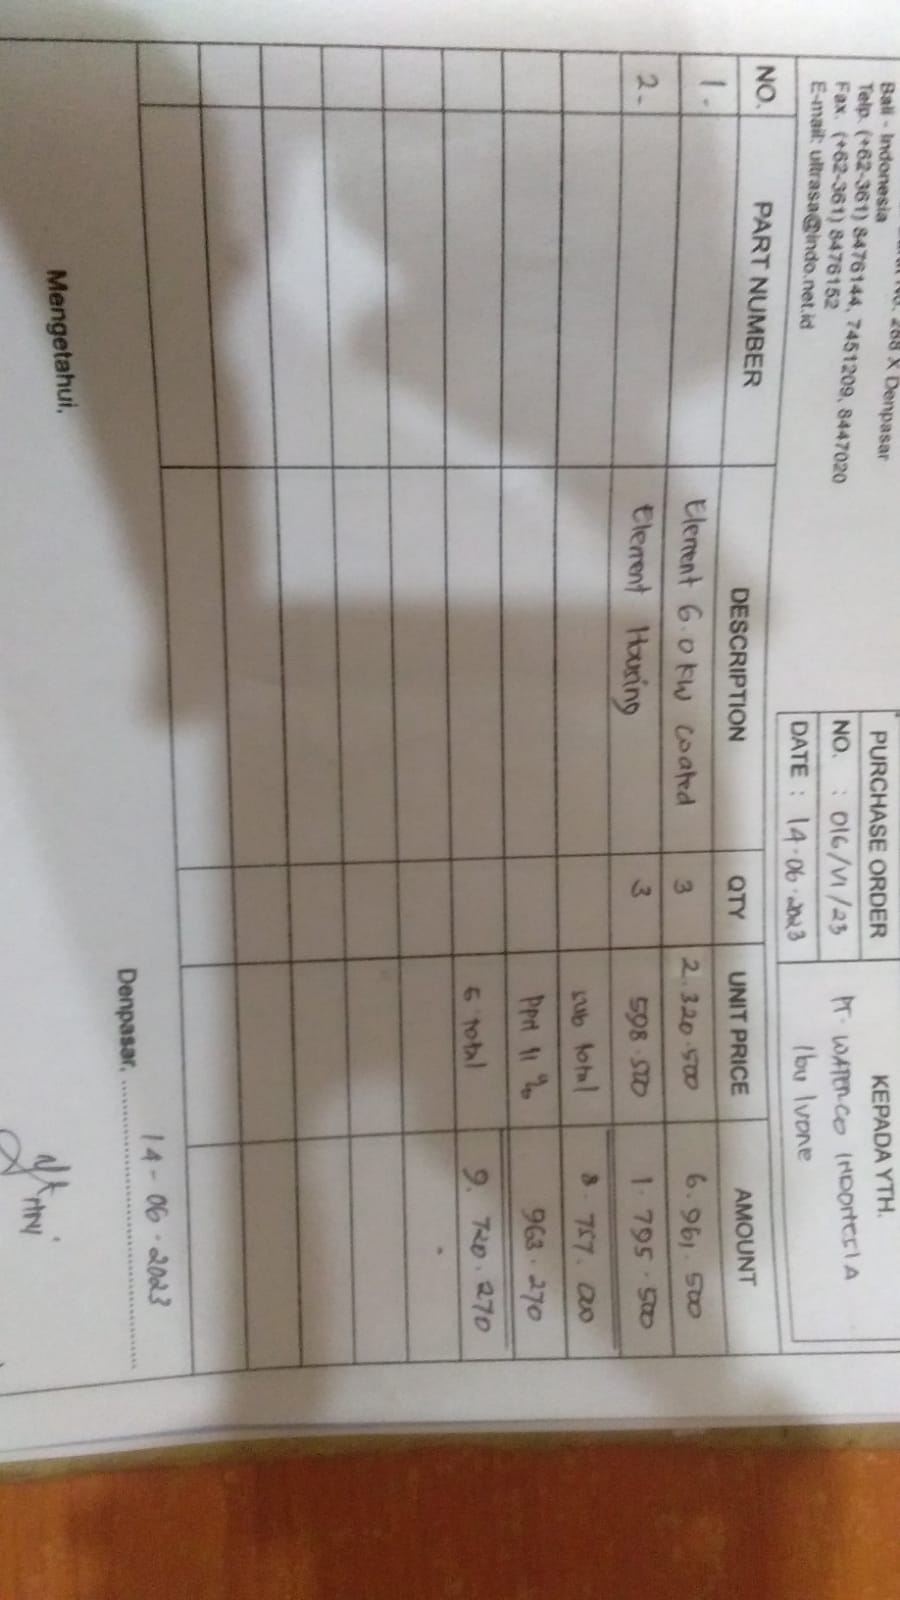 No. 288 X Denpasar
Bali - Indonesia
Telp. (+62-361) 8476144, 7451209, 8447020
Fax. (+62-361) 8476152
E-mail: ultrasa@indo.net.id
PURCHASE ORDER
NO. : 016/VI/23
DATE : 14.06.2023
KEPADA YTH.
PT. WATERCO INDONESIA
Ibu Ivone
NO. PART NUMBER DESCRIPTION QTY UNIT PRICE AMOUNT
1. Element 6.0 KW coated 3 2.320.500 6.961.500
2. Element Housing 3 598.500 1.795.500
sub total 8.757.000
PPN 11 % 963.270
G total 9.720.270
Denpasar, 14-06-2023
Mengetahui,